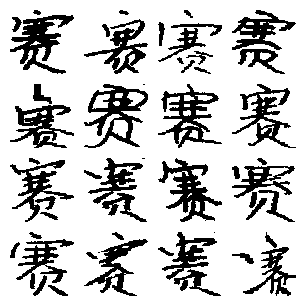 赛赛赛赛
赛赛赛赛
赛赛赛赛
赛赛赛赛